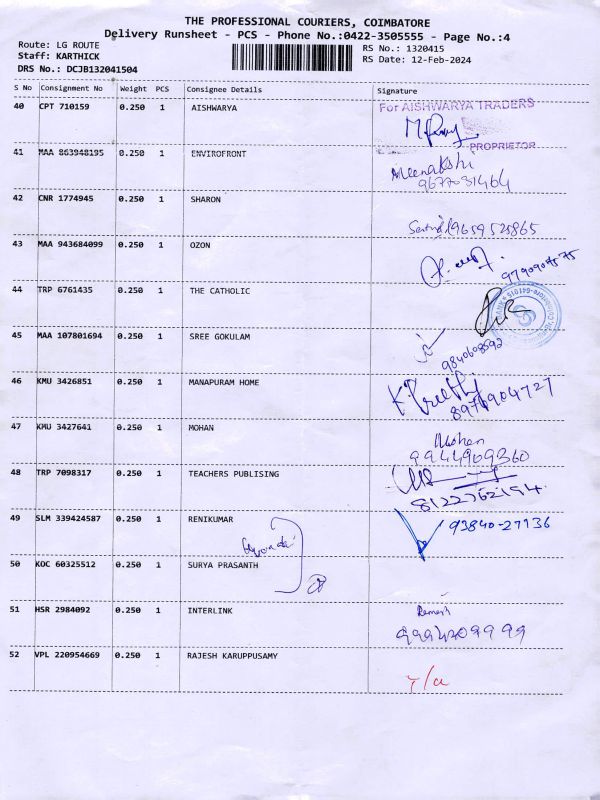 THE PROFESSIONAL COURIERS, COIMBATORE
Delivery Runsheet - PCS - Phone No.:0422-3505555 - Page No.:4
Route: LG ROUTE
RS No.: 1320415
Staff: KARTHICK
RS Date: 12-Feb-2024
DRS No.: DCJB132041504
S No Consignment No Weight PCS Consignee Details Signature
40 CPT 710159 0.250 1 AISHWARYA For AISHWARYA TRADERS
PROPRIETOR
41 MAA 863948195 0.250 1 ENVIROFRONT Meenakshi
9677031464
42 CNR 1774945 0.250 1 SHARON
9659525865
43 MAA 943684099 0.250 1 OZON
44 TRP 6761435 0.250 1 THE CATHOLIC
45 MAA 107801694 0.250 1 SREE GOKULAM
9840608592
46 KMU 3426851 0.250 1 MANAPURAM HOME K. Preethi
8978904727
47 KMU 3427641 0.250 1 MOHAN Mohan
9944909360
48 TRP 7098317 0.250 1 TEACHERS PUBLISING
8122762194
49 SLM 339424587 0.250 1 RENIKUMAR 93840-27136
50 KOC 60325512 0.250 1 SURYA PRASANTH
51 HSR 2984092 0.250 1 INTERLINK Ramesh
9994209999
52 VPL 220954669 0.250 1 RAJESH KARUPPUSAMY
T/a